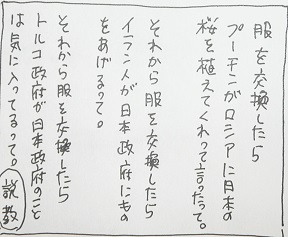 服を交換したら
プーチンがロシアに日本の
桜を植えてくれって言ったって。
それから服を交換したら
イラン人が日本政府にもの
をあげるって。
それから服を交換したら
トルコ政府が日本政府のこと
は気に入ってるって。
説教